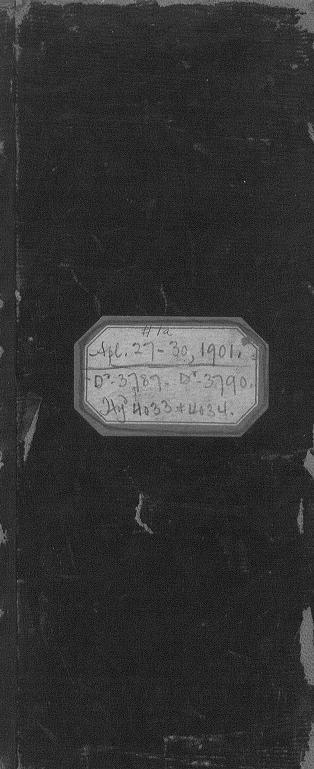 H1a
Apl. 27-30, 1901.
D^s-3787. D^s-3790.
Hy^d 4033 + 4034.